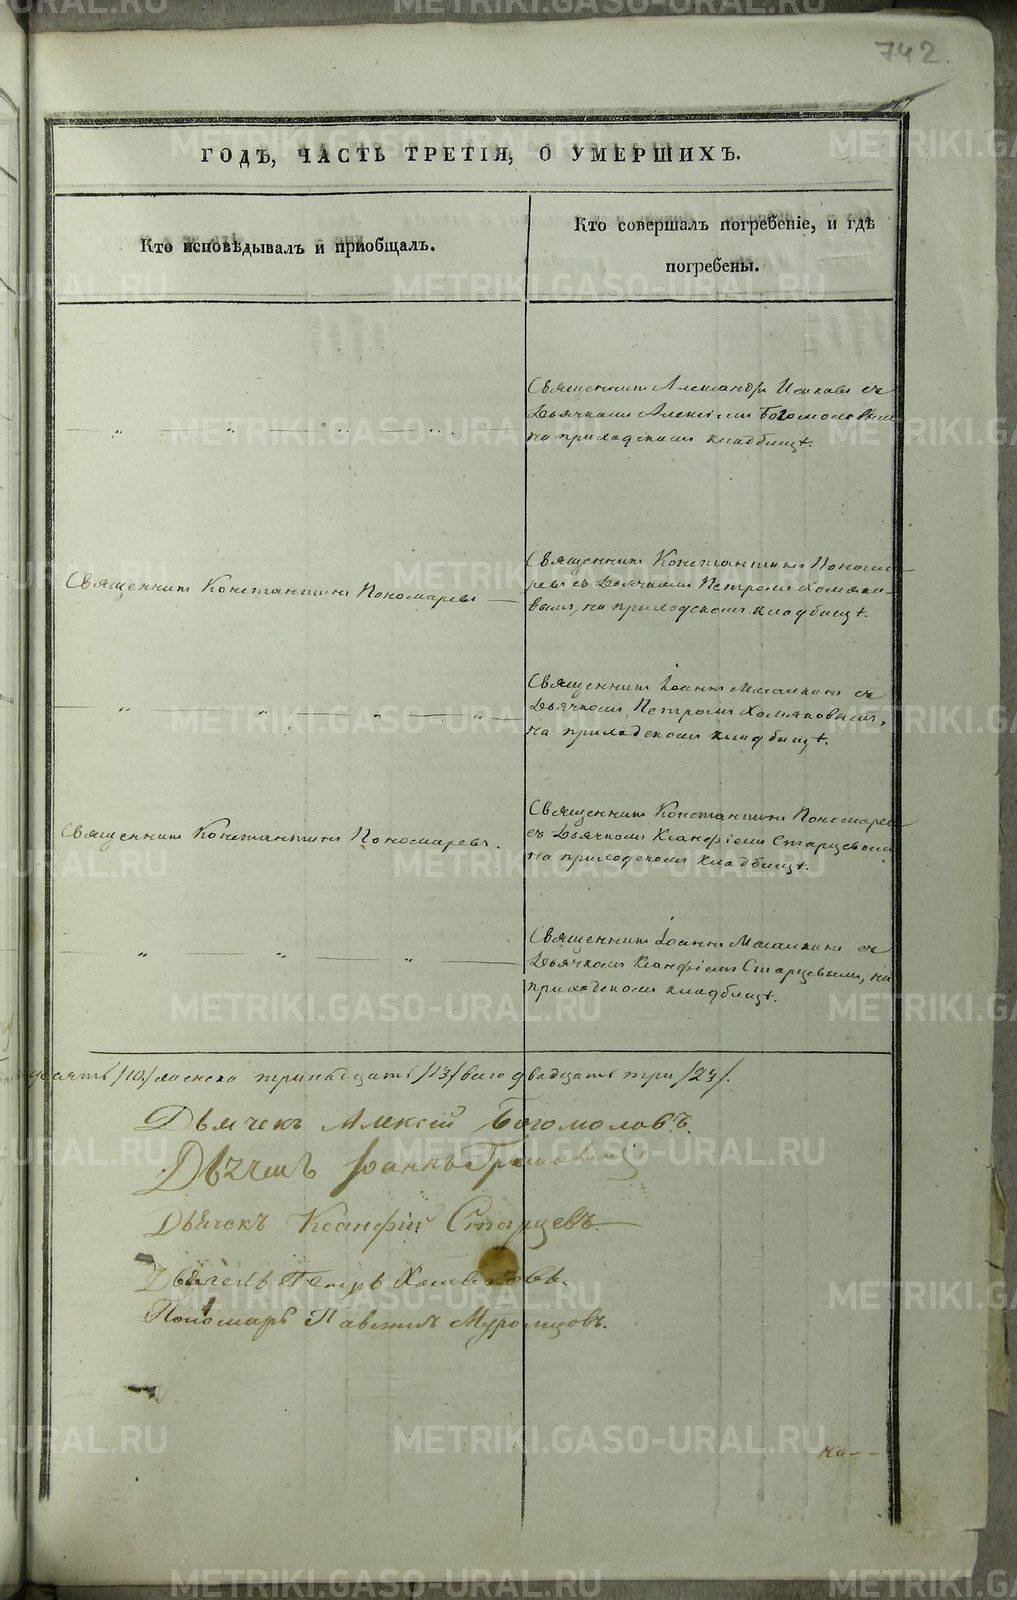 742
ГОДЪ, ЧАСТЬ ТРЕТІЯ, О УМЕРШИХЪ.
Кто исповѣдывалъ и пріобщалъ.
Кто совершалъ погребеніе, и гдѣ
погребены.
Священникъ Александръ съ
Дьячкомъ Алексіемъ Богомоловымъ
на приходскомъ кладбищѣ.
Священникъ Константинъ Пономаревъ
Священникъ Константинъ Понома-
ревъ съ Дьячкомъ Петромъ Хомяко-
вымъ, на приходскомъ кладбищѣ.
Священникъ Іоаннъ съ
Дьячкомъ Петромъ Хомяковымъ,
на приходскомъ кладбищѣ.
Священникъ Константинъ Пономаревъ.
Священникъ Константинъ Пономаревъ
съ Дьячкомъ Ксанфіемъ Старцевымъ
на приходскомъ кладбищѣ.
Священникъ Іоаннъ съ
Дьячкомъ Ксанфіемъ Старцевымъ, на
приходскомъ кладбищѣ.
десять /10/ женска тринадцать /13/ всего двадцать три /23/.
Дьячекъ Алексій Богомоловъ.
Дьячекъ Іоаннъ
Дьячекъ Ксанфій Старцевъ.
Дьячекъ Петръ Хомяковъ.
Пономарь Павелъ Муромцовъ.
METRIKI.GASO-URAL.RU